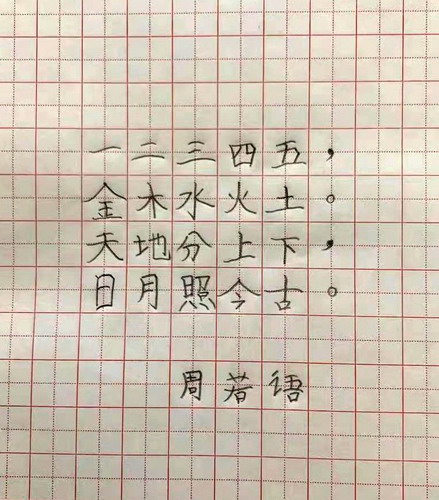 一二三四五，
金木水火土。
天地分上下，
日月照今古。
周若语